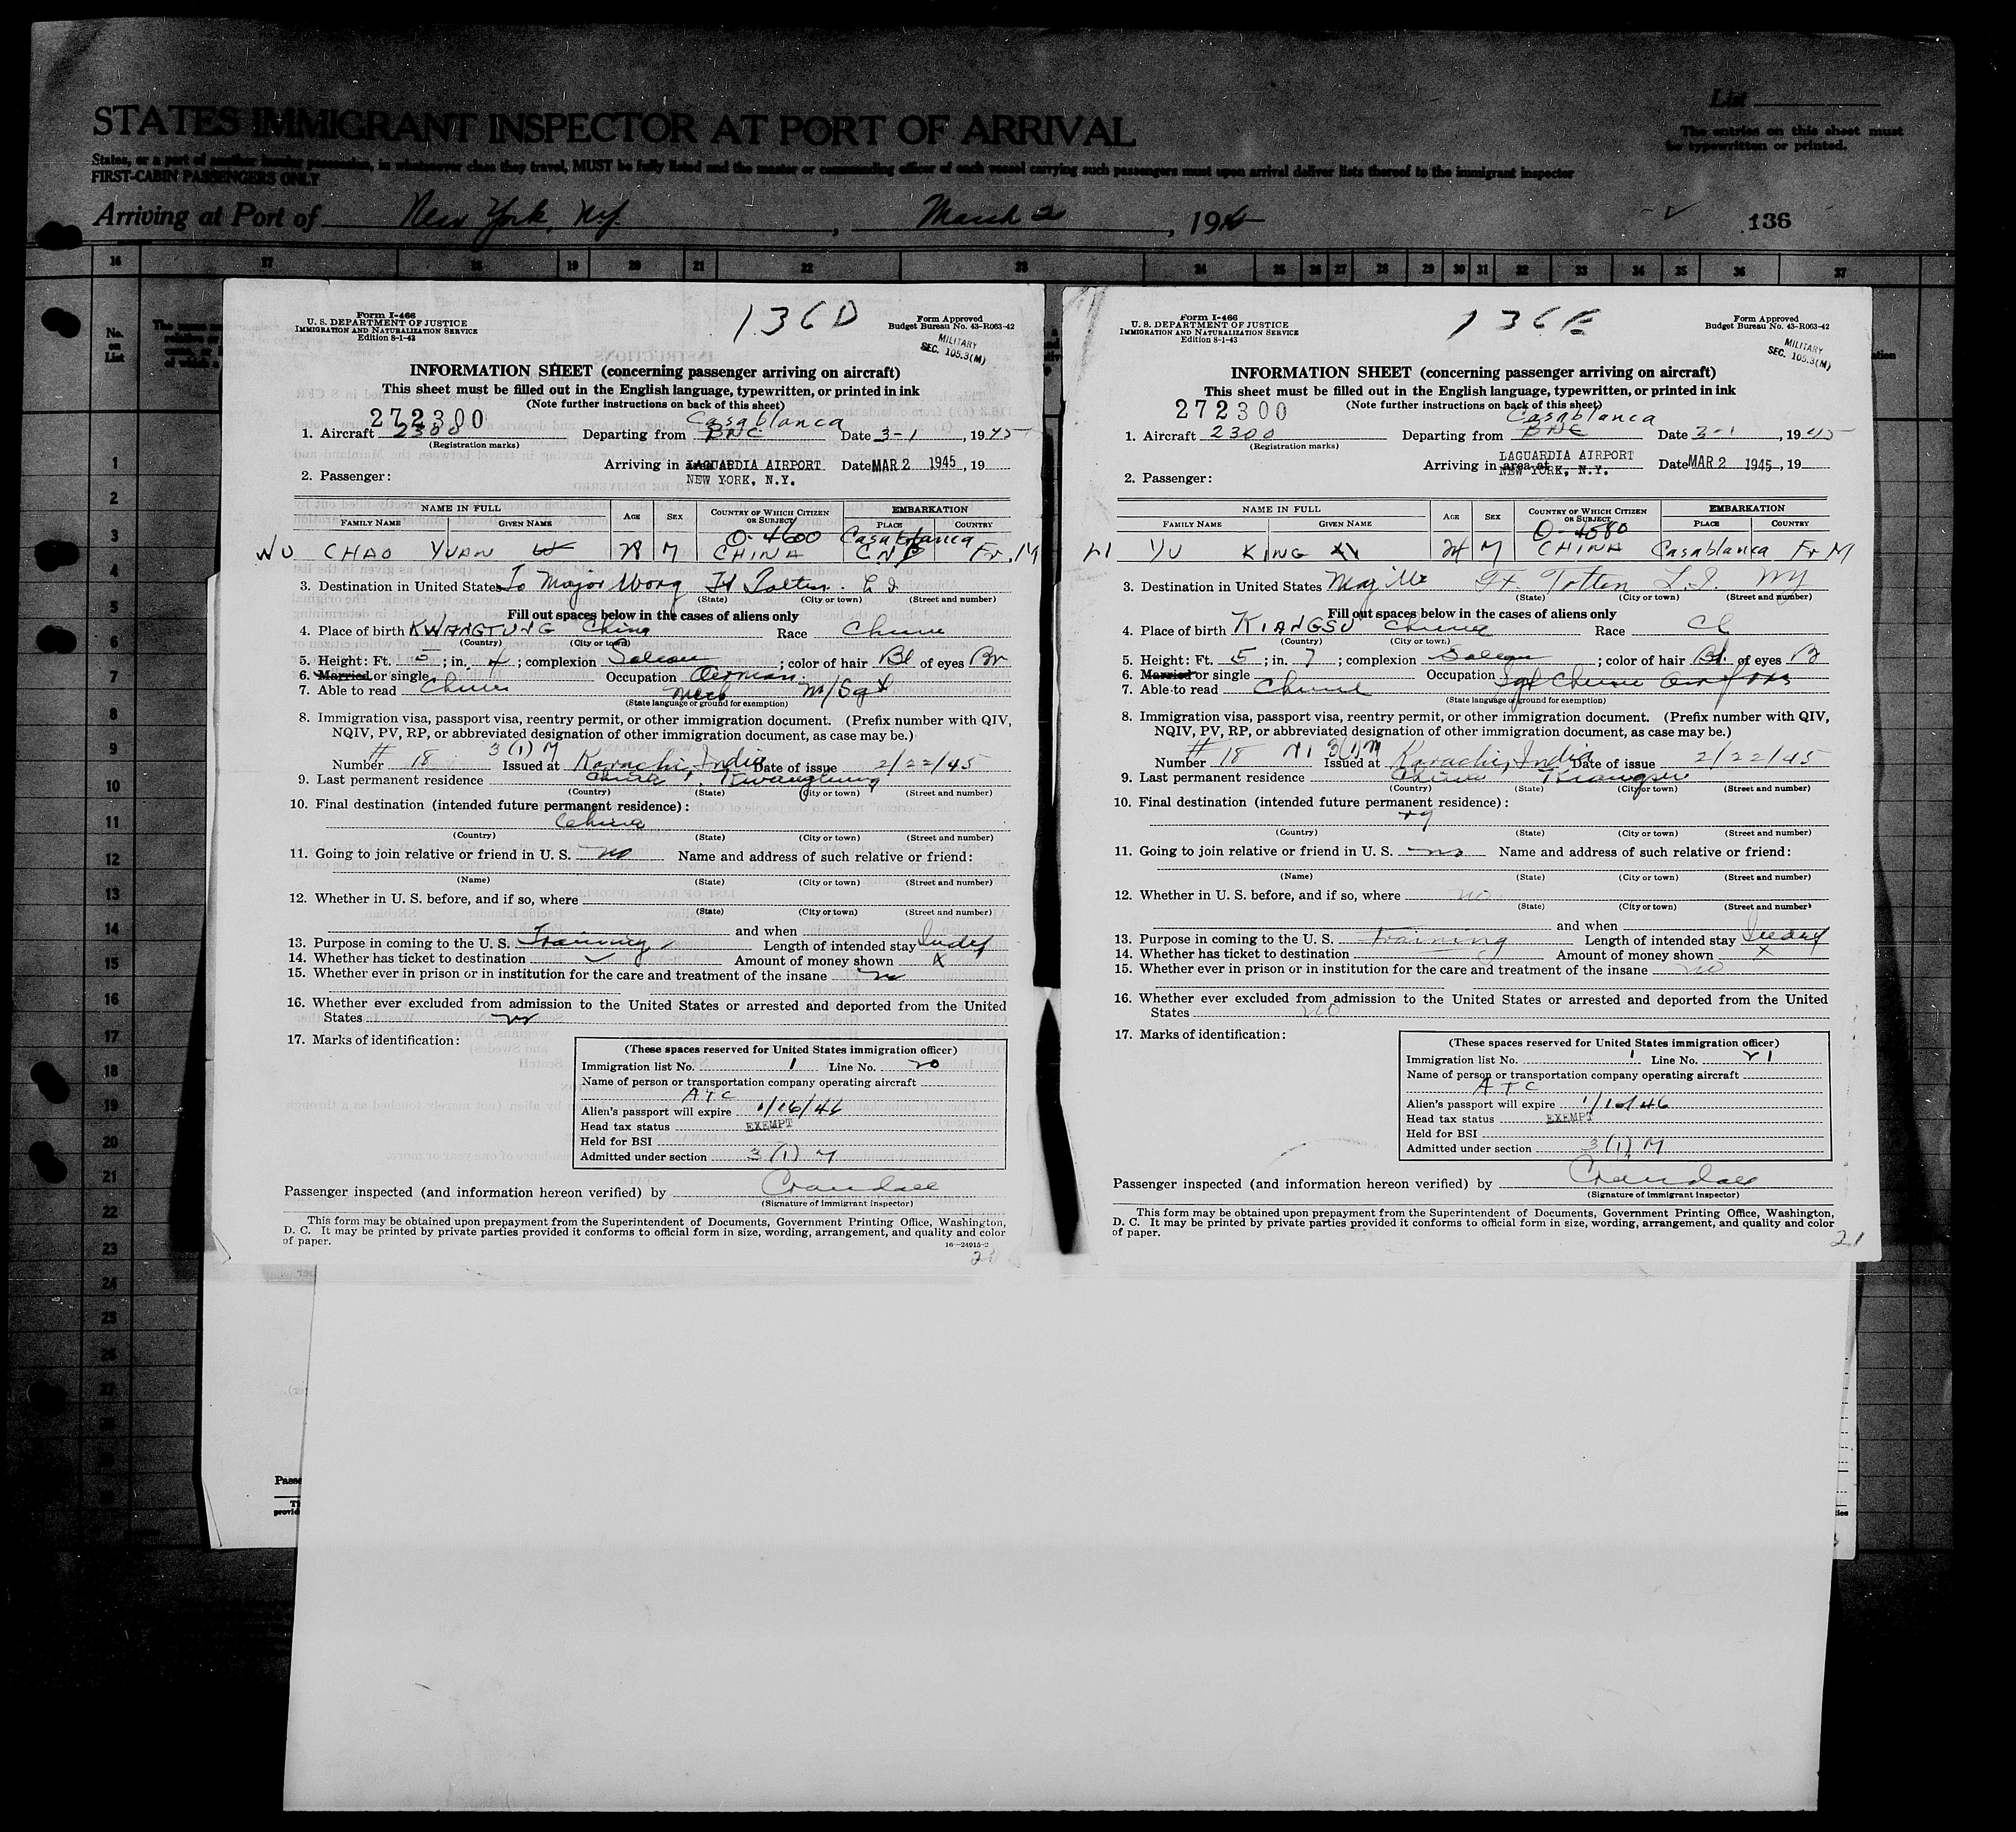 STATES IMMIGRANT INSPECTOR AT PORT OF ARRIVAL
List
The entries on this sheet must
be typewritten or printed.
States, or a part of another insular possession, in whatsoever class they travel, MUST be fully listed and the master or commanding officer of each vessel carrying such passengers must upon arrival deliver lists thereof to the immigrant inspector
FIRST-CABIN PASSENGERS ONLY
Arriving at Port of New York, N.Y. , March 2 , 194
136
16 17 18 19 20 21 22 23 24 25 26 27 28 29 30 31 32 33 34 35 36 37
No.
on
List
1
2
3
4
5
6
7
8
9
10
11
12
13
14
15
16
17
18
19
20
21
22
23
24
25
26
27
Form I-466
U. S. DEPARTMENT OF JUSTICE
IMMIGRATION AND NATURALIZATION SERVICE
Edition 8-1-43
136D
Form Approved
Budget Bureau No. 43-R063-42
MILITARY
SEC. 105.3(M)
INFORMATION SHEET (concerning passenger arriving on aircraft)
This sheet must be filled out in the English language, typewritten, or printed in ink
(Note further instructions on back of this sheet)
272300 Casablanca
1. Aircraft 2300 Departing from BNC Date 3-1 , 1945
(Registration marks)
Arriving in LAGUARDIA AIRPORT Date MAR 2 1945 , 19
2. Passenger: NEW YORK, N.Y.
NAME IN FULL AGE SEX COUNTRY OF WHICH CITIZEN OR SUBJECT EMBARKATION
FAMILY NAME GIVEN NAME PLACE COUNTRY
O-4600 Casablanca
WU CHAO YUAN W M CHINA Fr. M
3. Destination in United States To Major Wong Ft Totten L I
(State) (City or town) (Street and number)
Fill out spaces below in the cases of aliens only
4. Place of birth KWANGTUNG China Race Chinese
(Country) (City or town)
5. Height: Ft. 5 ; in. 4 ; complexion Sallow ; color of hair Bl of eyes Br
6. Married or single Occupation
7. Able to read Chinese Mech M/Sgt
(State language or ground for exemption)
8. Immigration visa, passport visa, reentry permit, or other immigration document. (Prefix number with QIV,
NQIV, PV, RP, or abbreviated designation of other immigration document, as case may be.)
Number # 18 3(1) M Issued at Karachi, India Date of issue 2/22/45
9. Last permanent residence China, Kwangtung
(Country) (State) (City or town) (Street and number)
10. Final destination (intended future permanent residence):
China
(Country) (State) (City or town) (Street and number)
11. Going to join relative or friend in U. S. no Name and address of such relative or friend:
(Name) (State) (City or town) (Street and number)
12. Whether in U. S. before, and if so, where
(State) (City or town) (Street and number)
and when
13. Purpose in coming to the U. S. Training Length of intended stay Indef
14. Whether has ticket to destination ✓ Amount of money shown X
15. Whether ever in prison or in institution for the care and treatment of the insane no
16. Whether ever excluded from admission to the United States or arrested and deported from the United
States no
17. Marks of identification:
(These spaces reserved for United States immigration officer)
Immigration list No. 1 Line No. 20
Name of person or transportation company operating aircraft
ATC
Alien's passport will expire 1/16/46
Head tax status EXEMPT
Held for BSI
Admitted under section 3(1) M
Passenger inspected (and information hereon verified) by Crandall
(Signature of immigrant inspector)
This form may be obtained upon prepayment from the Superintendent of Documents, Government Printing Office, Washington,
D. C. It may be printed by private parties provided it conforms to official form in size, wording, arrangement, and quality and color
of paper.
16-24915-2
Form I-466
U. S. DEPARTMENT OF JUSTICE
IMMIGRATION AND NATURALIZATION SERVICE
Edition 8-1-43
136E
Form Approved
Budget Bureau No. 43-R063-42
MILITARY
SEC. 105.3(M)
INFORMATION SHEET (concerning passenger arriving on aircraft)
This sheet must be filled out in the English language, typewritten, or printed in ink
(Note further instructions on back of this sheet)
272300 Casablanca
1. Aircraft 2300 Departing from BNC Date 3-1 , 1945
(Registration marks)
LAGUARDIA AIRPORT
Arriving in area at Date MAR 2 1945 , 19
2. Passenger: NEW YORK, N.Y.
NAME IN FULL AGE SEX COUNTRY OF WHICH CITIZEN OR SUBJECT EMBARKATION
FAMILY NAME GIVEN NAME PLACE COUNTRY
YU KING M CHINA Casablanca Fr M
3. Destination in United States Ft. Totten L.I. NY
(State) (City or town) (Street and number)
Fill out spaces below in the cases of aliens only
4. Place of birth KIANGSU China Race Ch
(Country) (City or town)
5. Height: Ft. 5 ; in. 7 ; complexion Sallow ; color of hair Bl. of eyes B
6. Married or single Occupation Sgt Chinese Air force
7. Able to read Chinese
(State language or ground for exemption)
8. Immigration visa, passport visa, reentry permit, or other immigration document. (Prefix number with QIV,
NQIV, PV, RP, or abbreviated designation of other immigration document, as case may be.)
Number # 18 3(1)M Issued at Karachi, India Date of issue 2/22/45
9. Last permanent residence China Kiangsu
(Country) (State) (City or town) (Street and number)
10. Final destination (intended future permanent residence):
(Country) (State) (City or town) (Street and number)
11. Going to join relative or friend in U. S. no Name and address of such relative or friend:
(Name) (State) (City or town) (Street and number)
12. Whether in U. S. before, and if so, where no
(State) (City or town) (Street and number)
and when
13. Purpose in coming to the U. S. Training Length of intended stay Indef
14. Whether has ticket to destination Amount of money shown X
15. Whether ever in prison or in institution for the care and treatment of the insane no
16. Whether ever excluded from admission to the United States or arrested and deported from the United
States no
17. Marks of identification:
(These spaces reserved for United States immigration officer)
Immigration list No. 1 Line No. 21
Name of person or transportation company operating aircraft
ATC
Alien's passport will expire 1/16/46
Head tax status EXEMPT
Held for BSI
Admitted under section 3(1) M
Passenger inspected (and information hereon verified) by Crandall
(Signature of immigrant inspector)
This form may be obtained upon prepayment from the Superintendent of Documents, Government Printing Office, Washington,
D. C. It may be printed by private parties provided it conforms to official form in size, wording, arrangement, and quality and color
of paper.
21